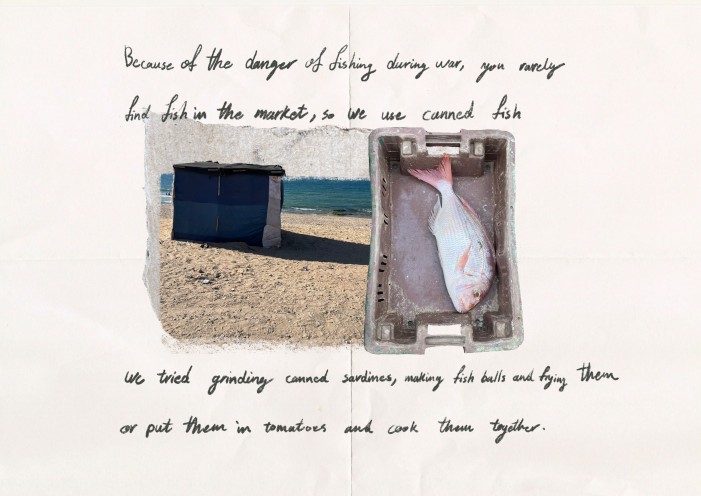 Because of the danger of fishing during war, you rarely
find fish in the market, so we use canned fish
We tried grinding canned sardines, making fish balls and frying them
or put them in tomatoes and cook them together.